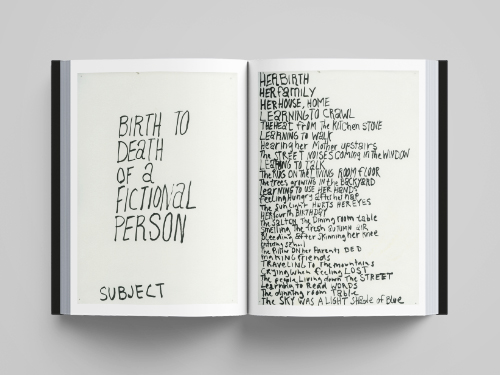 BIRTH TO
DEATH
OF a
FICTIONAL
PERSON
SUBJECT
HER BIRTH
HER FAMILY
HER HOUSE, HOME
LEARNING TO CRAWL
THE HEAT FROM THE KITCHEN STOVE
LEARNING TO WALK
Hearing her Mother upstairs
The STREET NOISES Coming in the WINDOW
LEARNING TO TALK
The RUG ON THE LIVING ROOM FLOOR
The trees growing in the BACKYARD
LEARNING TO USE HER HANDS
feeling Hungry after his nap
The Sunlight HURTS HER EYES
HER fourth BIRTHDAY
The SALT ON The Dining room table
Smelling The fresh AUTUMN AIR
Bleeding after Skinning her knee
school
The Pillow ON her Parents BED
making friends
TRAVELING TO The mountains
Crying when feeling LOST
The people Living down The STREET
Learning to Read WORDS
The dinning room Table
The SKY WAS A LIGHT Shade of Blue